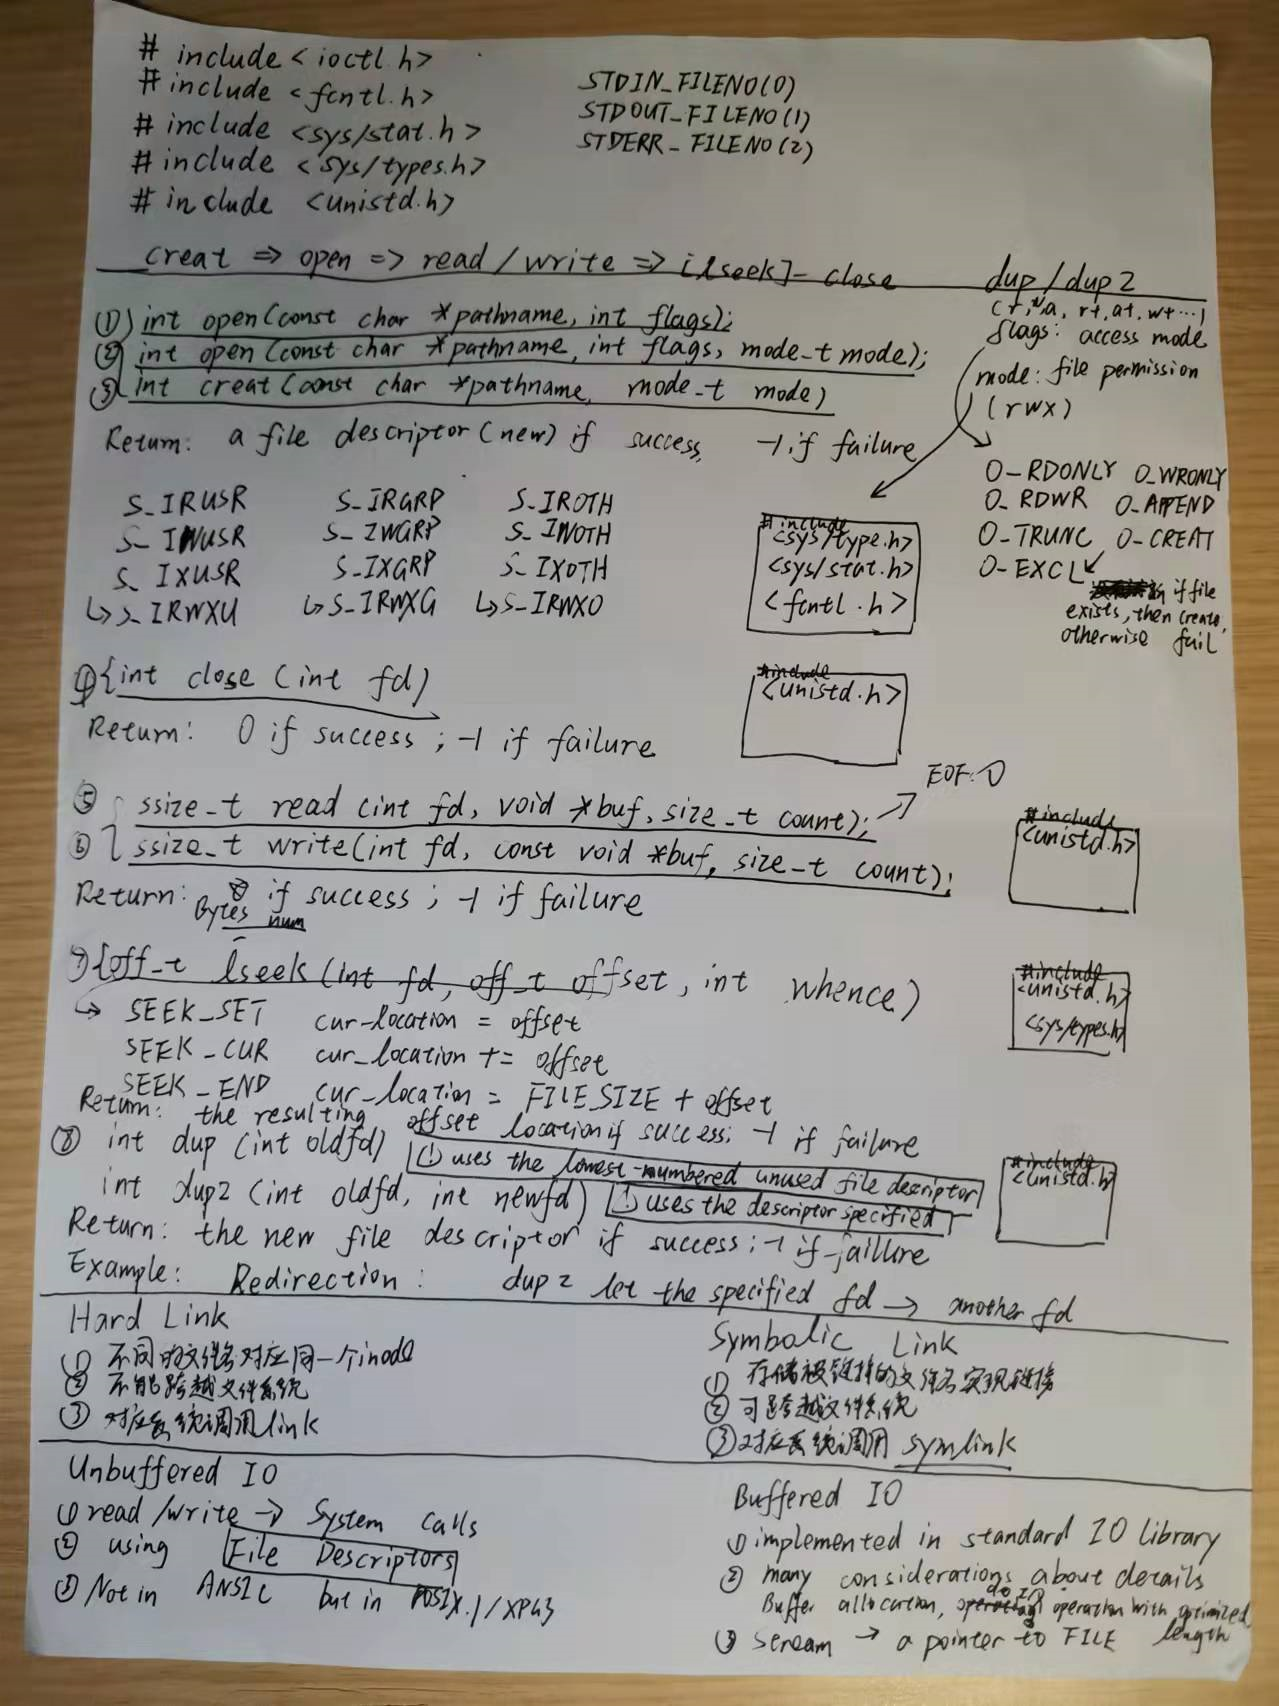 # include <ioctl.h>
# include <fcntl.h>
# include <sys/stat.h>
# include <sys/types.h>
# include <unistd.h>
STDIN_FILENO(0)
STDOUT_FILENO(1)
STDERR_FILENO(2)
creat => open => read/write => [lseek] - close
dup/dup2
(r, w, a, r+, a+, w+ ...)
flags: access mode
mode: file permission
(rwx)
① int open(const char *pathname, int flags);
② int open(const char *pathname, int flags, mode_t mode);
③ int creat(const char *pathname, mode_t mode)
Return: a file descriptor (new) if success, -1 if failure
S_IRUSR S_IRGRP S_IROTH
S_IWUSR S_IWGRP S_IWOTH
S_IXUSR S_IXGRP S_IXOTH
↳S_IRWXU ↳S_IRWXG ↳S_IRWXO
#include
<sys/type.h>
<sys/stat.h>
<fcntl.h>
O_RDONLY O_WRONLY
O_RDWR O_APPEND
O_TRUNC O_CREAT
O_EXCL
if file
exists, then create,
otherwise fail
④ {int close (int fd)
Return: 0 if success; -1 if failure
#include
<unistd.h>
EOF: 0
⑤ ssize_t read (int fd, void *buf, size_t count);
⑥ ssize_t write(int fd, const void *buf, size_t count);
Return: Bytes num if success; -1 if failure
#include
<unistd.h>
⑦ {off_t lseek(int fd, off_t offset, int whence)
→ SEEK_SET cur-location = offset
SEEK_CUR cur_location += offset
SEEK_END cur_location = FILE_SIZE + offset
Return: the resulting offset location if success; -1 if failure
#include
<unistd.h>
<sys/types.h>
⑧ int dup (int oldfd) (!) uses the lowest-numbered unused file descriptor
int dup2 (int oldfd, int newfd) (!) uses the descriptor specified
Return: the new file descriptor if success; -1 if faillure
#include
<unistd.h>
Example: Redirection: dup2 let the specified fd → another fd
Hard Link
① 不同的文件名对应同一个inode
② 不能跨越文件系统
③ 对应系统调用link
Symbolic Link
① 存储被链接的文件名实现链接
② 可跨越文件系统
③ 对应系统调用 symlink
Unbuffered IO
① read/write → System calls
② using File Descriptors
③ Not in ANSI C but in POSIX.1/XPG3
Buffered IO
① implemented in standard IO library
② many considerations about details
Buffer allocation, do IO operation with optimized length
③ stream → a pointer to FILE